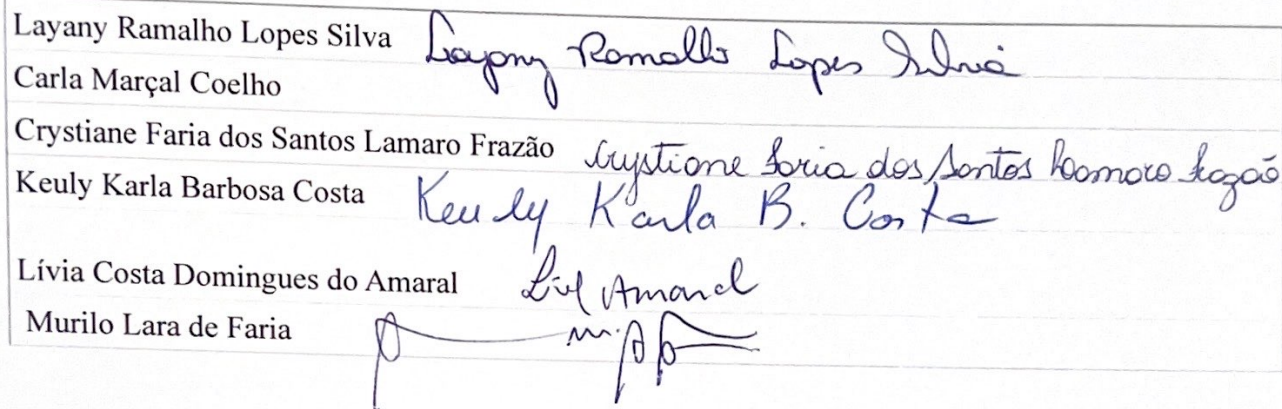 Layany Ramalho Lopes Silva Layany Ramalho Lopes Silva
Carla Marçal Coelho
Crystiane Faria dos Santos Lamaro Frazão Crystiane Faria dos Santos Lamaro Frazão
Keuly Karla Barbosa Costa Keuly Karla B. Costa
Lívia Costa Domingues do Amaral Amaral
Murilo Lara de Faria